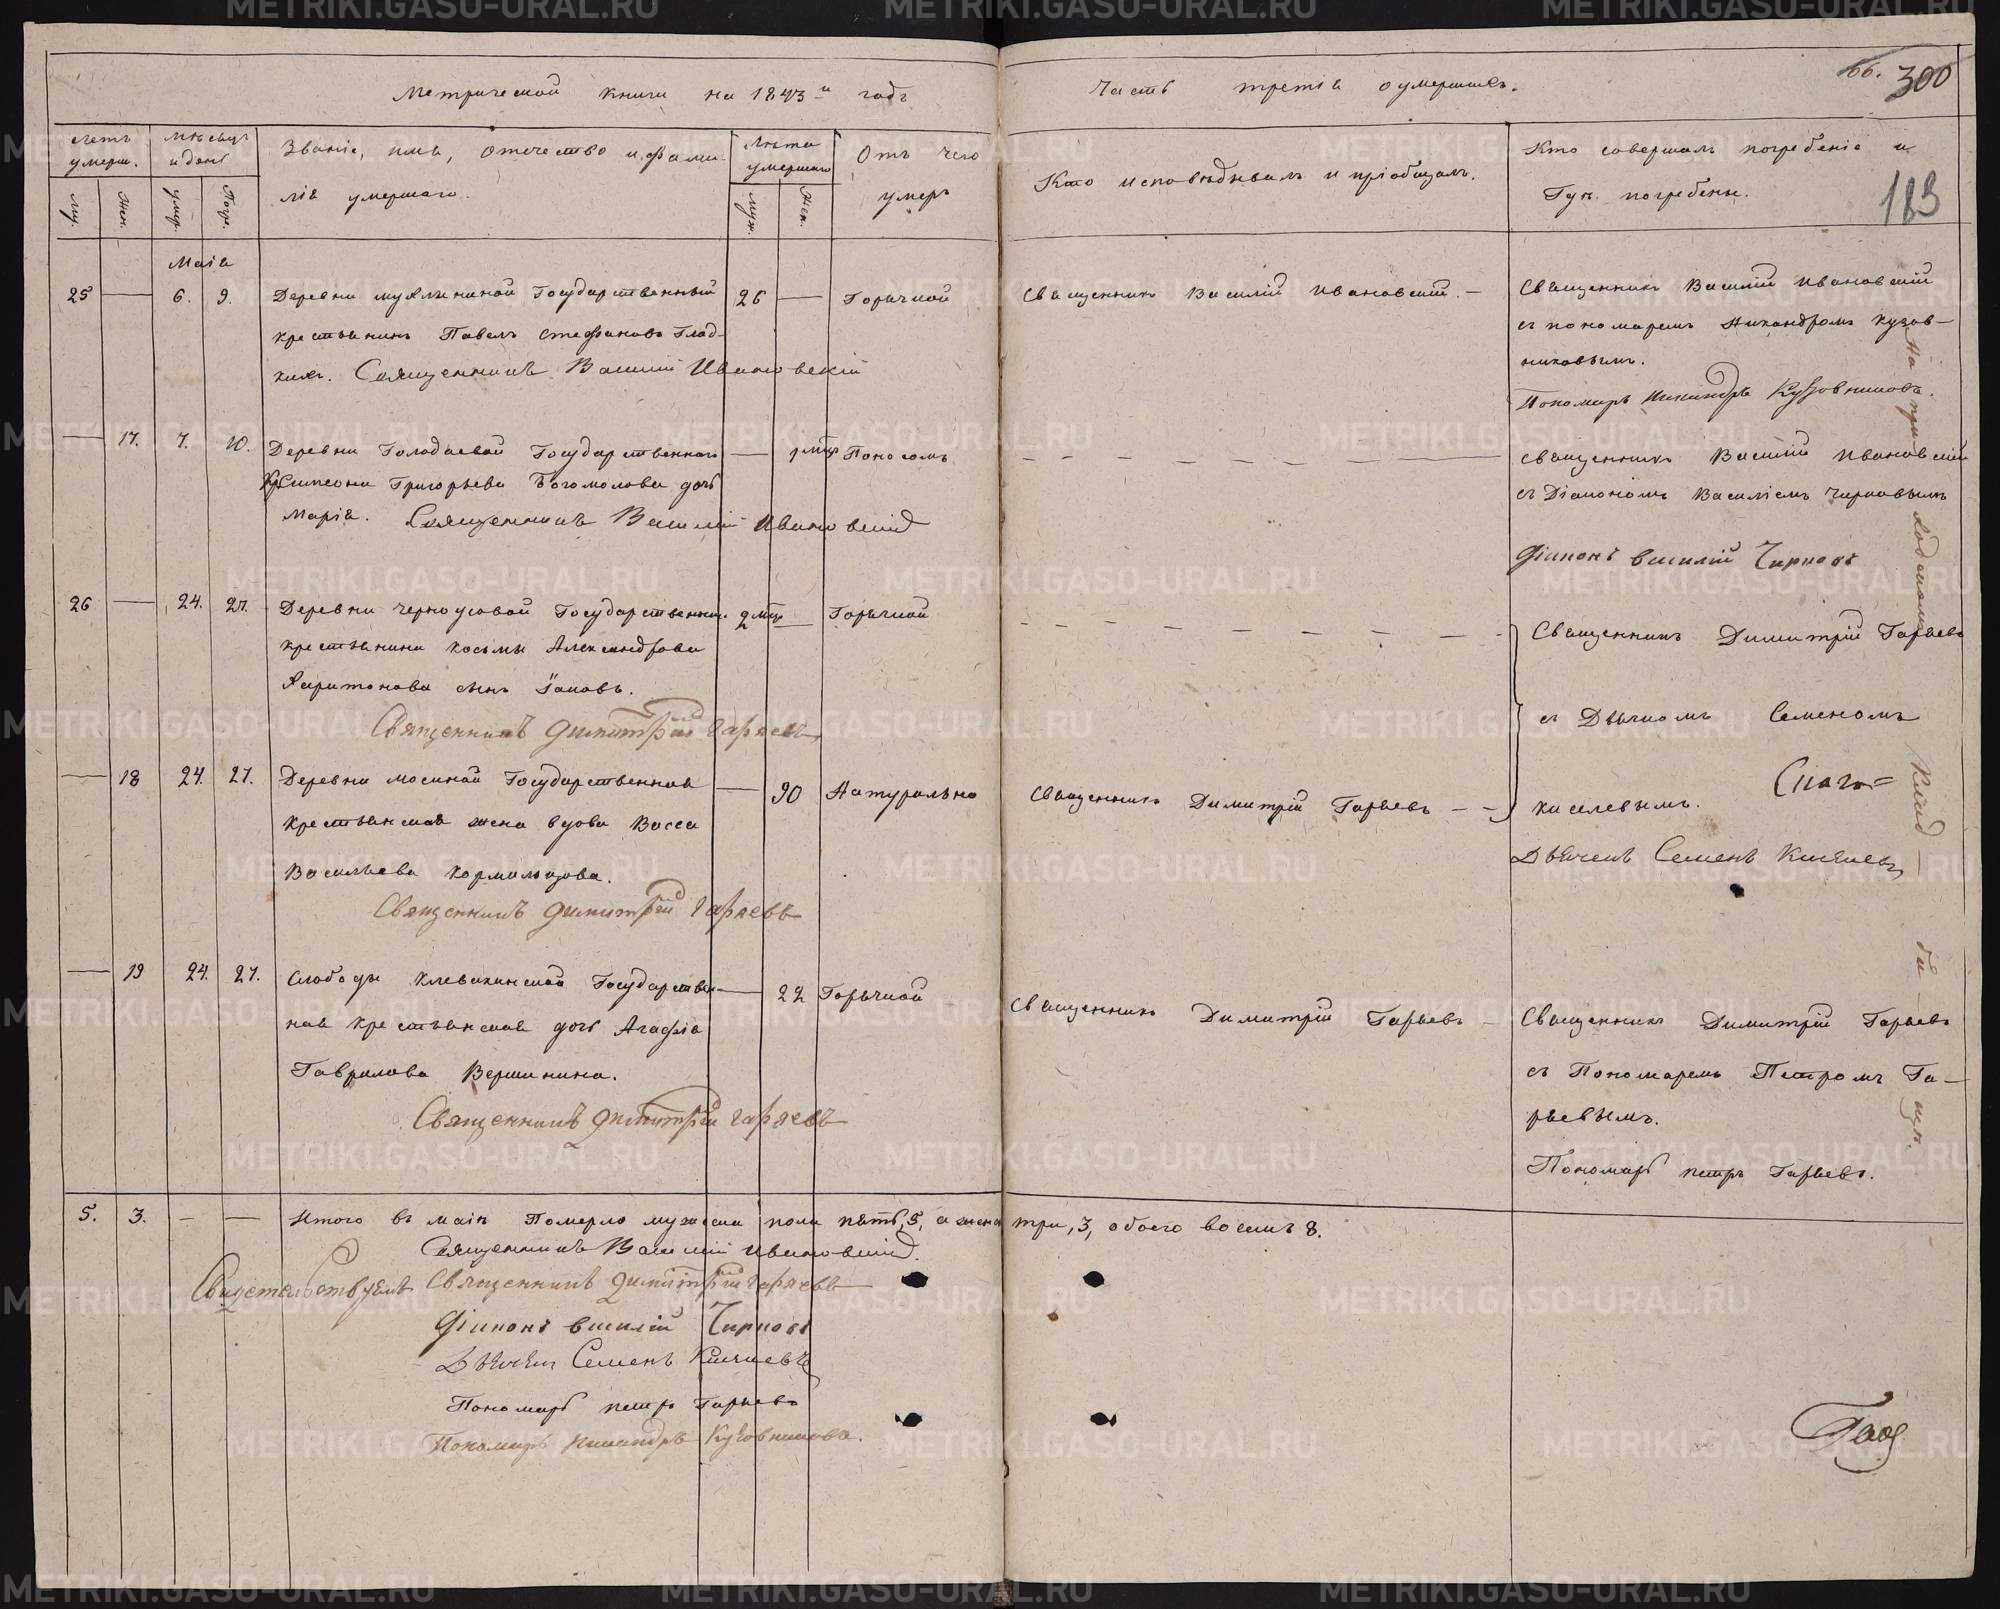 Метрической книги на 1843й годъ
Часть третія о умершихъ.
66. 300
183
Счетъ умерш.
Муж.
Жен.
Мѣсяцъ и день
умер.
Погр.
Званіе, имя, отчество и фами-
лія умершаго.
Лѣта умершаго
муж.
Жен.
Отъ чего
умеръ
Кто исповѣдывалъ и пріобщалъ.
Кто совершалъ погребеніе и
Гдѣ погребены.
Маія
25 — 6. 9. Деревни Государственный 26 — Горячкой
крестьянинъ Павелъ Стефановъ Глад-
кихъ. Священникъ Василій Ивановскій
Священникъ Василій Ивановскій. —
Священникъ Василій Ивановскій
съ пономаремъ Никандромъ Кузов-
никовымъ.
Пономарь Никандръ Кузовниковъ.
— 17. 7. 10. Деревни Голодаевой Государственнаго — 1 мца Поносомъ
Кр. Симеона Григорьева Богомолова дочь
Марія. Священникъ Василій Ивановскій
Священникъ Василій Ивановскій
съ Діакономъ Василіемъ Чирковымъ
Діаконъ Василій Чирковъ
26 — 24. 27. Деревни Черноусовой Государственна. 2 мца — Горячкой
крестьянина Косьмы Александрова
Харитонова сынъ Іаковъ.
Священникъ Димитрій Гаряевъ
Священникъ Димитрій Гаряевъ
съ Дьячкомъ Семеномъ
Киселевымъ.
Дьячекъ Семенъ Киселевъ
— 18 24. 27. Деревни Мосиной Государственная — 90 Натурально
крестьянская жена вдова Васса
Васильева Кормильцова.
Священникъ Димитрій Гаряевъ
Священникъ Димитрій Гаряевъ — —
— 19 24. 27. Слободы Клевакинской Государствен- — 22 Горячкой
ная крестьянская дочь Агафія
Гаврилова Вершинина.
Священникъ Димитрій Гаряевъ
Священникъ Димитрій Гаряевъ —
Священникъ Димитрій Гаряевъ
съ Пономаремъ Петромъ Га-
ряевымъ.
Пономарь Петръ Гаряевъ.
На приходскомъ кладбищѣ.
5. 3. — — Итого въ маіѣ Померло мужеска пола пять, 5, а женска три, 3, обоего восемь 8.
Священникъ Василій Ивановскій.
Свидетельствуемъ Священникъ Димитрій Гаряевъ
Діаконъ Василій Чирковъ
Дьячекъ Семенъ Киселевъ
Пономарь Петръ Гаряевъ
Пономарь Никандръ Кузовниковъ.
METRIKI.GASO-URAL.RU